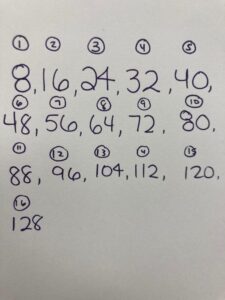 ① ② ③ ④ ⑤
8, 16, 24, 32, 40,
⑥ ⑦ ⑧ ⑨ ⑩
48, 56, 64, 72, 80,
⑪ ⑫ ⑬ ④ ⑮
88, 96, 104, 112, 120,
⑯
128